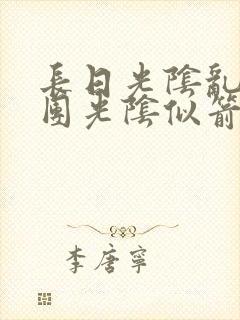 長日光陰亂
團光陰似箭
李唐寧